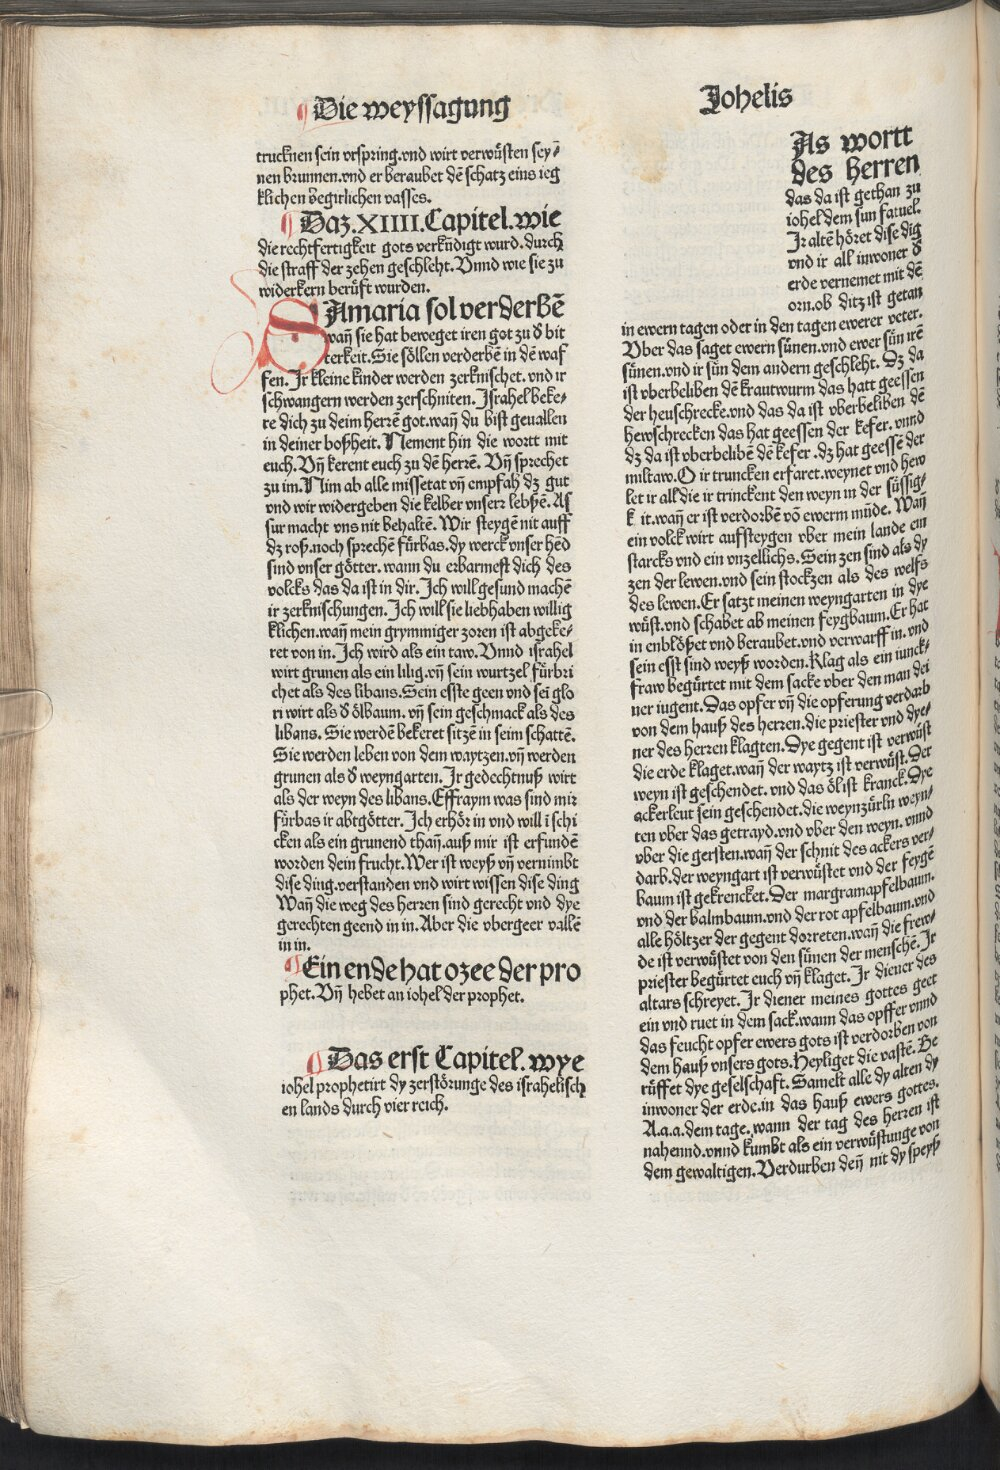 Die weyssagung
trucknen sein vrspring.vnd wirt verwu̇sten sey-
nen brunnen.vnd er beraubet dē schatz eins ieg
klichen v̄egirlichen vasses.
Daz.XIIII.Capitel.wie
die rechtfertigkeit gots verku̇ndigt wurd.durch
die straff der zehen geschleht.Vnnd wie sie zu
widerkern beru̇fft wurden.
SAmaria sol verderbē
wañ sie hat beweget iren got zu d̄ bit
terkeit.Sie söllen verderbē in dē waf
fen.Ir kleine kinder werden zerknischet.vnd ir
schwangern werden zerschniten.Israhel beke-
re dich zu deim herrē got.wañ du bist geuallen
in deiner boßheit.Nement hin die wortt mit
euch.Vñ kerent euch zu dē herrē.Vñ sprechet
zu im.Nim ab alle missetat vñ empfah dz gut
vnd wir widergeben die kelber vnserr lebßē.As
sur macht vns nit behaltē.Wir steygē nit auff
dz roß.noch sprechē fu̇rbas.dy werck vnser hēd
sind vnser götter.wann du erbarmest dich des
volcks das da ist in dir.Ich will gesund machē
ir zerknischungen.Ich will sie liebhaben willig
klichen.wañ mein grymmiger zoren ist abgeke-
ret von in.Ich wird als ein taw.Vnnd israhel
wirt grunen als ein lilig.vñ sein wurtzel fu̇rbri
chet als des libans.Sein esste geen vnd sei glo
ri wirt als d̄ ölbaum.vñ sein geschmack als des
libans.Sie werdē bekeret sitzē in seim schattē.
Sie werden leben von dem waytzen.vñ werden
grunen als d̄ weyngarten.Ir gedechtnuß wirt
als der weyn des libans.Effraym was sind mir
fu̇rbas ir abtgötter.Ich erhör in vnd will i schi
cken als ein grunend thañ.auß mir ist erfundē
worden dein frucht.Wer ist weyß vñ vernimbt
dise ding.verstanden vnd wirt wissen dise ding
Wañ die weg des herren sind gerecht vnd dye
gerechten geend in in.Aber die vbergeer vallē
in in.
Ein ende hat ozee der pro
phet.Vñ hebet an iohel der prophet.
Das erst Capitel.wye
iohel prophetirt dy zerstörunge des israhelisch
en lands durch vier reich.
Johelis
As wortt
des herren
das da ist gethan zu
iohel dem sun fatuel.
Ir altē höret dise dig
vnd ir all inwoner d̄
erde vernemet mit dē
orn.ob ditz ist getan
in ewern tagen oder in den tagen ewerer veter.
Vber das saget ewern su̇nen.vnd ewer su̇n irē
su̇nen.vnd ir su̇n dem andern geschleht. Dz da
ist vberbeliben dē krautwurm das hatt geessen
der heuschrecke.vnd das da ist vberbeliben dē
hewschrecken das hat geessen der kefer.vnnd
dz da ist vberbelibē dē kefer.dz hat geessē der
miltaw.O ir truncken erfaret.weynet vnd hew
let ir all die ir trinckent den weyn in der su̇ssig-
k it.wañ er ist verdorbē vō ewerm mu̇de. Wañ
ein volck wirt aufsteygen vber mein lande ein
starcks vnd ein vnzellichs.Sein zen sind als dy
zen der lewen.vnd sein stockzen als des welfs
des lewen.Er satzt meinen weyngarten in dye
wu̇st.vnd schabet ab meinen feygbaum.Er hat
in enblößet vnd beraubet.vnd verwarff in.vnd
sein esst sind weyß worden.Klag als ein iunck-
fraw begu̇rtet mit dem sacke vber den man dei
ner iugent.Das opfer vñ die opferung verdarb
von dem hauß des herren.die priester vnd dye-
ner des herren klagten.Dye gegent ist verwu̇st
die erde klaget.wañ der waytz ist verwu̇st.Der
weyn ist geschendet.vnd das öl ist kranck.Dye
ackerleut sein geschendet.die weynzu̇rln weyn-
ten vber das getrayd.vnd vber den weyn.vnnd
vber die gersten.wañ der schnit des ackers ver-
darb.der weyngart ist verwu̇stet vnd der feygē
baum ist gekrencket.Der margramapfelbaum.
vnd der balmbaum.vnd der rot apfelbaum.vnd
alle höltzer der gegent dorreten.wañ die frew-
de ist verwu̇stet von den su̇nen der menschē.Ir
priester begu̇rtet euch vñ klaget.Ir diener des
altars schreyet.Ir diener meines gottes geet
ein vnd ruet in dem sack.wann das opffer vnnd
das feucht opfer ewers gots ist verdorben von
dem hauß vnsers gots.Heyliget die vastē.Be
ru̇ffet dye geselschaft.Samelt alle dy alten dy
inwoner der erde.in das hauß ewers gottes.
A.a.a.dem tage.wann der tag des herren ist
nahennd.vnnd kumbt als ein verwu̇stunge von
dem gewaltigen.Verdurben deñ nit dy speyß